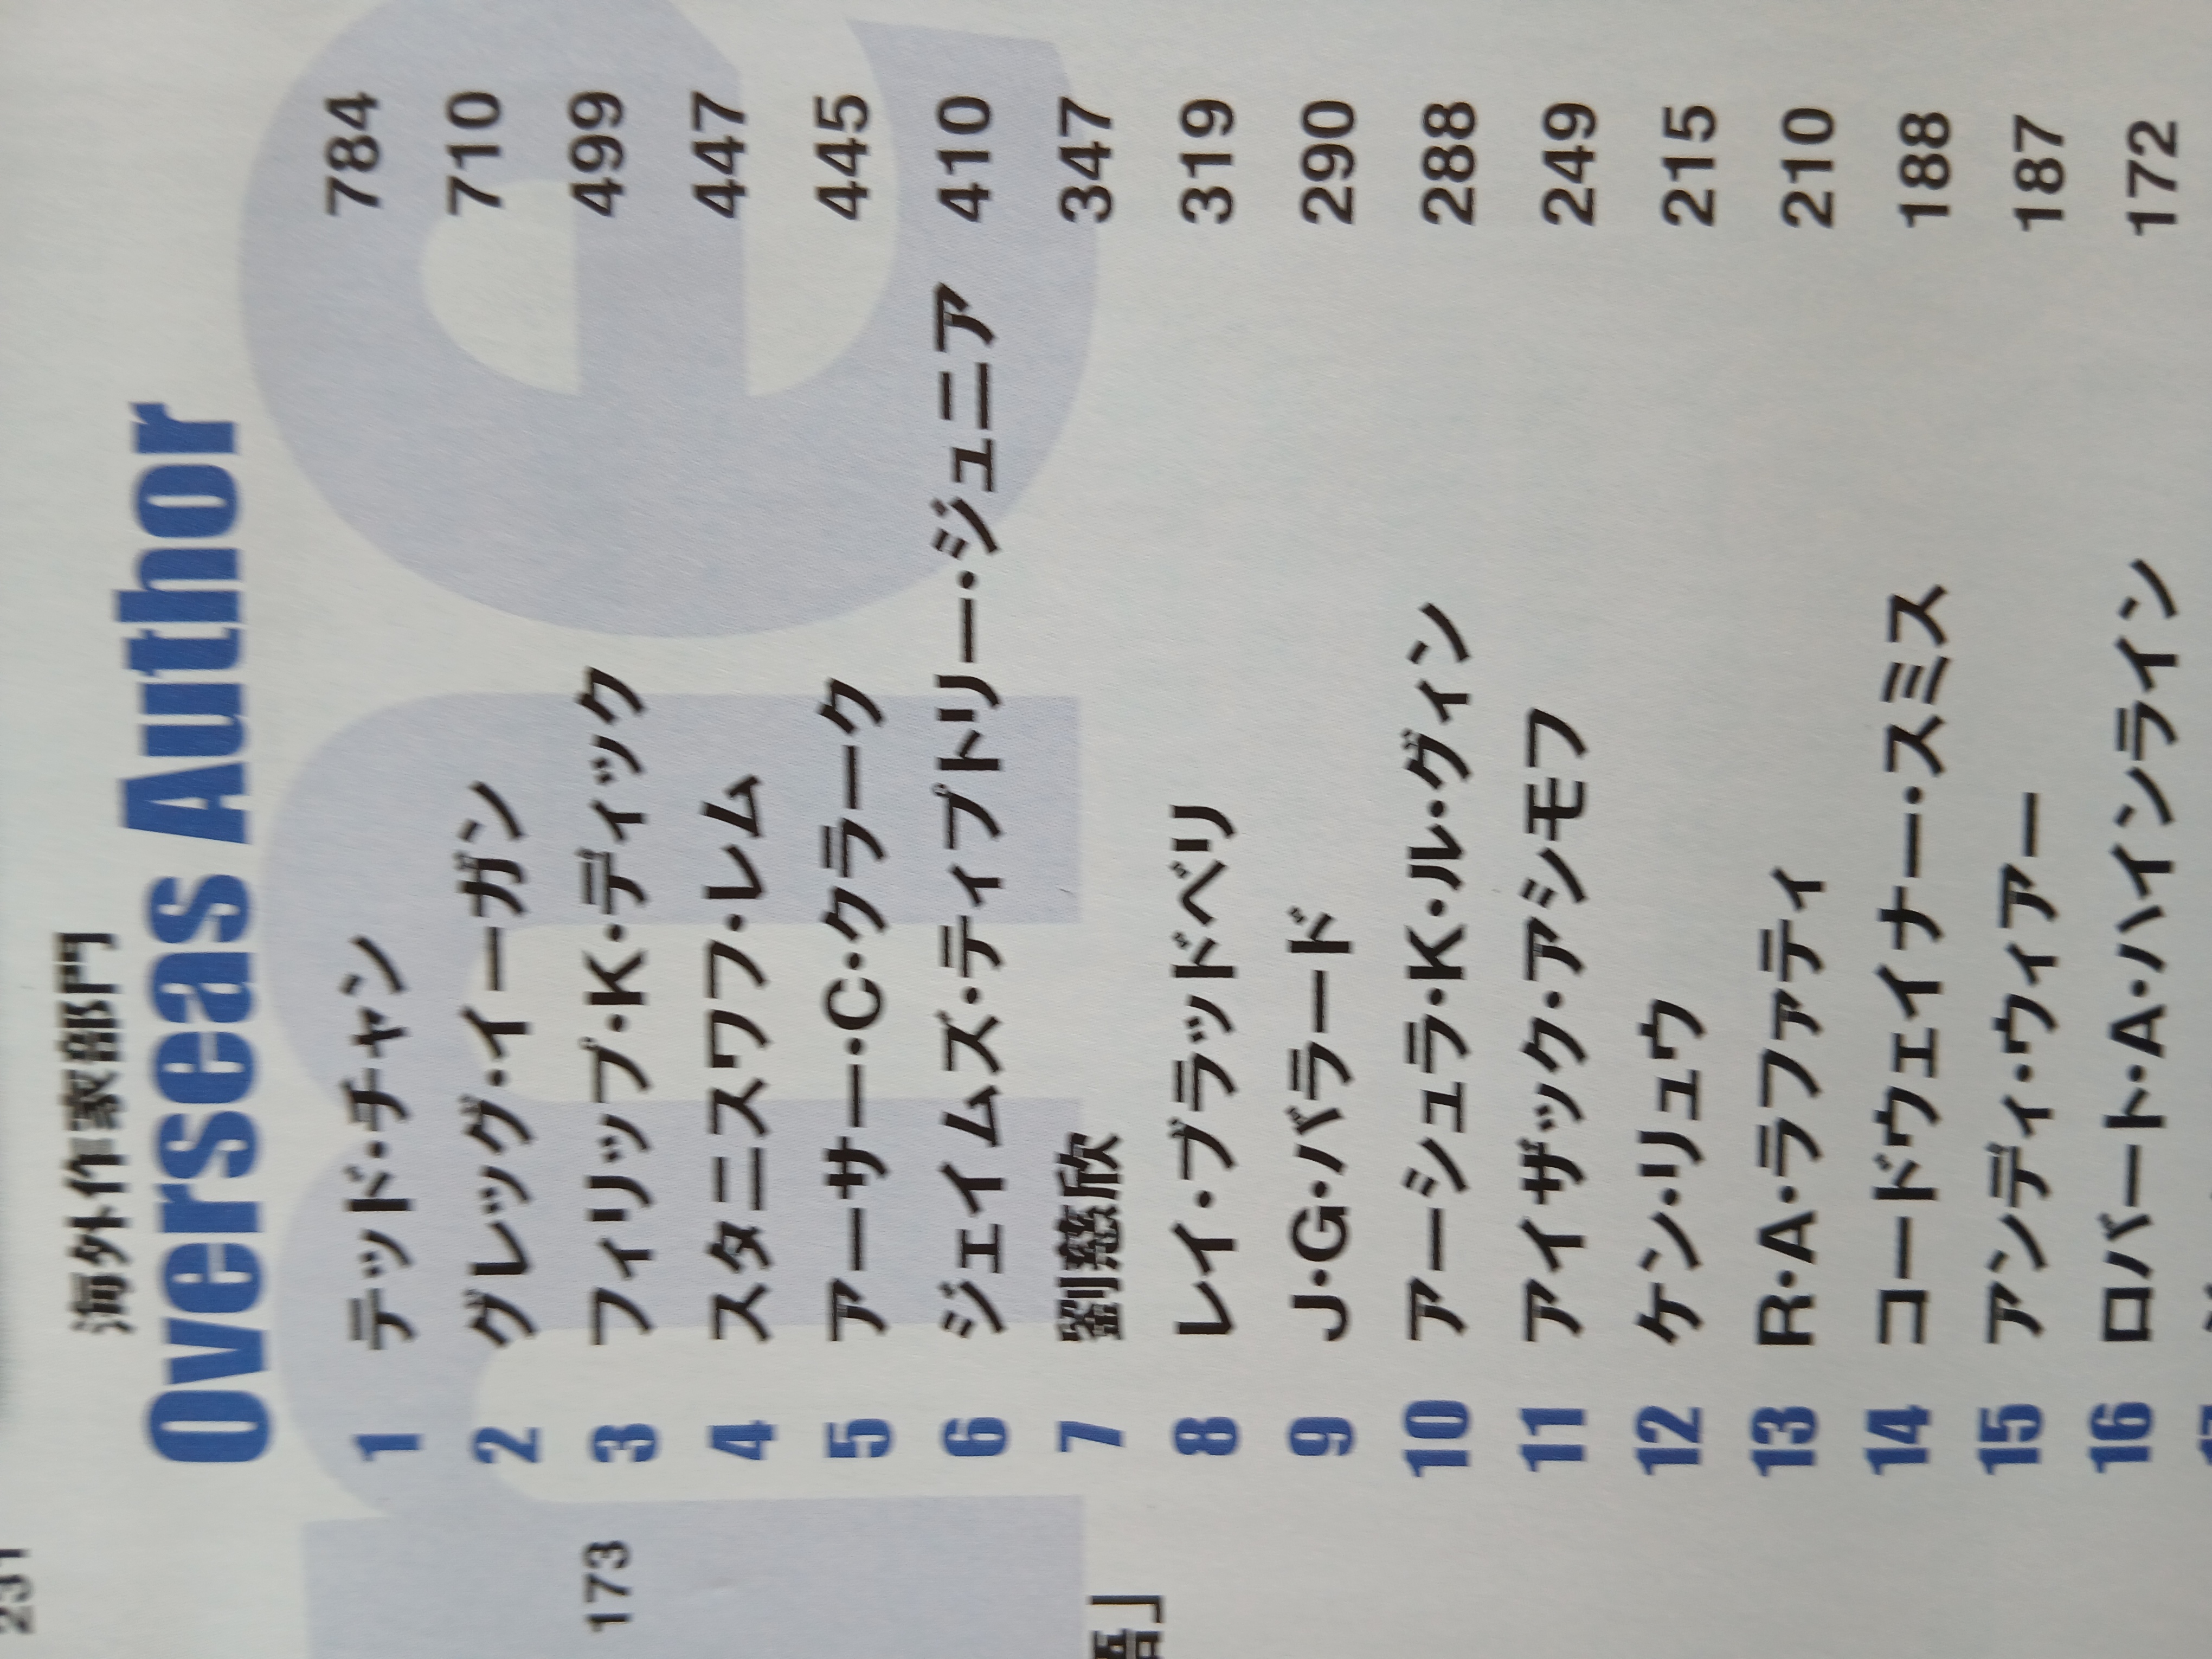 海外作家部門
Overseas Author
1 テッド・チャン 784
2 グレッグ・イーガン 710
3 フィリップ・K・ディック 499
4 スタニスワフ・レム 447
5 アーサー・C・クラーク 445
6 ジェイムズ・ティプトリー・ジュニア 410
7 劉慈欣 347
8 レイ・ブラッドベリ 319
9 J・G・バラード 290
10 アーシュラ・K・ル・グィン 288
11 アイザック・アシモフ 249
12 ケン・リュウ 215
13 R・A・ラファティ 210
14 コードウェイナー・スミス 188
15 アンディ・ウィアー 187
16 ロバート・A・ハインライン 172
17
231
173
語」